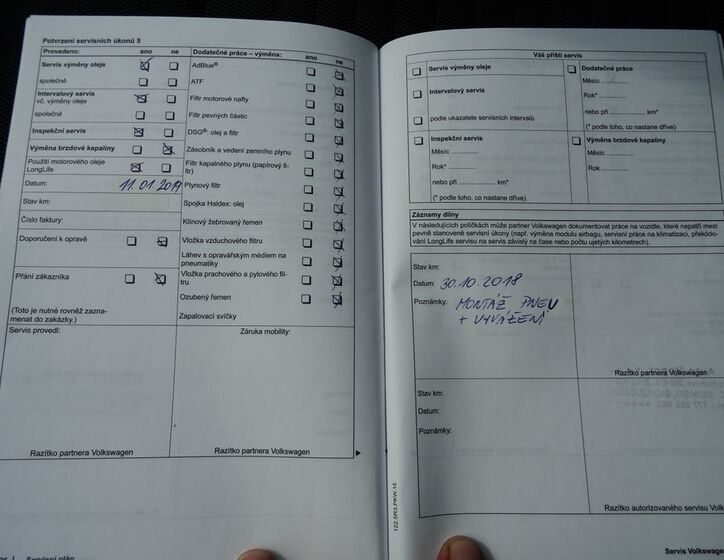 Potvrzení servisních úkonů 5
Provedeno: ano ne
Servis výměny oleje
společně
Intervalový servis
vč. výměny oleje
společně
Inspekční servis
Výměna brzdové kapaliny
Použití motorového oleje
LongLife
Datum: 11.01.2019
Stav km:
Číslo faktury:
Doporučení k opravě
Přání zákazníka
(Toto je nutné rovněž zazna-
menat do zakázky.)
Servis provedl:
Razítko partnera Volkswagen
Dodatečné práce – výměna: ano ne
AdBlue®
ATF
Filtr motorové nafty
Filtr pevných částic
DSG®: olej a filtr
Zásobník a vedení zemního plynu
Filtr kapalného plynu (papírový fil-
tr)
Plynový filtr
Spojka Haldex: olej
Klínový žebrovaný řemen
Vložka vzduchového filtru
Láhev s opravářským médiem na
pneumatiky
Vložka prachového a pylového fil-
tru
Ozubený řemen
Zapalovací svíčky
Záruka mobility:
Razítko partnera Volkswagen
Servisní plán
Váš příští servis
Servis výměny oleje
Intervalový servis
podle ukazatele servisních intervalů
Inspekční servis
Měsíc
Rok*
nebo při km*
(* podle toho, co nastane dříve)
Dodatečné práce
Měsíc
Rok*
nebo při km*
(* podle toho, co nastane dříve)
Výměna brzdové kapaliny
Měsíc
Rok
Záznamy dílny
V následujících políčkách může partner Volkswagen dokumentovat práce na vozidle, které nepatří mezi
pevně stanovené servisní úkony (např. výměna modulu airbagu, servisní práce na klimatizaci, překódo-
vání LongLife servisu na servis závislý na čase nebo počtu ujetých kilometrech).
Stav km:
Datum: 30.10.2018
Poznámky: MONTÁŽ PNEU
+ VYVÁŽENÍ
Razítko partnera Volkswagen
Stav km:
Datum:
Poznámky:
Razítko autorizovaného servisu Volk
122.5R3.PKW.15
Servis Volkswage